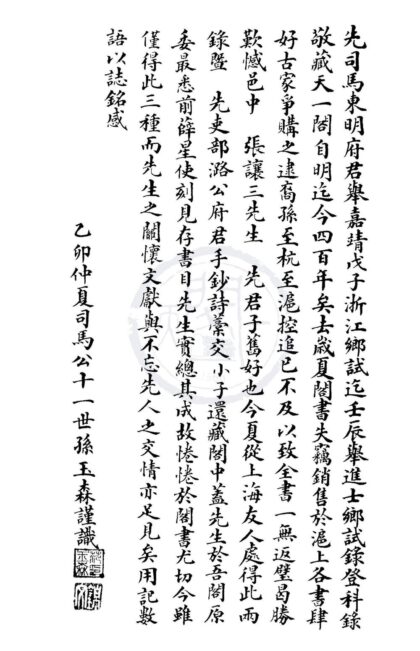 先司馬東明府君舉嘉靖戊子浙江鄉試迄壬辰舉進士鄉試錄登科錄
敬藏天一閣自明迄今四百年矣去歲夏閣書失竊銷售於滬上各書肆
好古家爭購之逮裔孫至杭至滬控追已不及以致全書一無返璧曷勝
歎憾邑中 張讓三先生 先君子舊好也今夏從上海友人處得此兩
錄暨 先吏部潞公府君手鈔詩藁交小子還藏閣中蓋先生於吾閣原
委最悉前薛星使刻見存書目先生實總其成故惓惓於閣書尤切今雖
僅得此三種而先生之關懷文獻與不忘先人之交情亦足見矣用記數
語以誌銘感
乙卯仲夏司馬公十一世孫玉森謹識